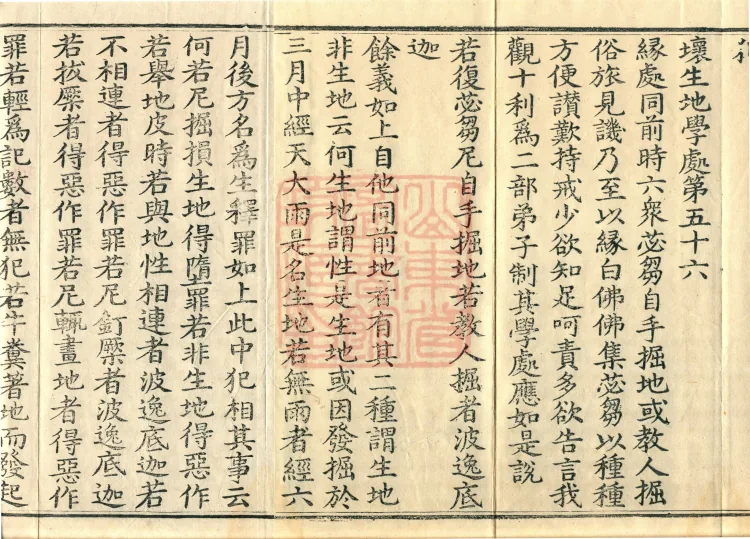 壞生地學處第五十六
緣處同前時六衆苾芻自手掘地或教人掘
俗旅見譏乃至以緣白佛佛集苾芻以種種
方便讃歎持戒少欲知足呵責多欲告言我
觀十利爲二部弟子制其學處應如是說
若復苾芻尼自手掘地若教人掘者波逸底
迦
餘義如上自他同前地者有其二種謂生地
非生地云何生地謂性是生地或因發掘於
三月中經天大雨是名生地若無雨者經六
月後方名爲生釋罪如上此中犯相其事云
何若尼掘損生地得墮罪若非生地得惡作
若舉地皮時若與地性相連者波逸底迦若
不相連者得惡作罪若尼釘橜者波逸底迦
若拔橜者得惡作罪若尼輒畫地者得惡作
罪若輕爲記數者無犯若牛糞著地而發起